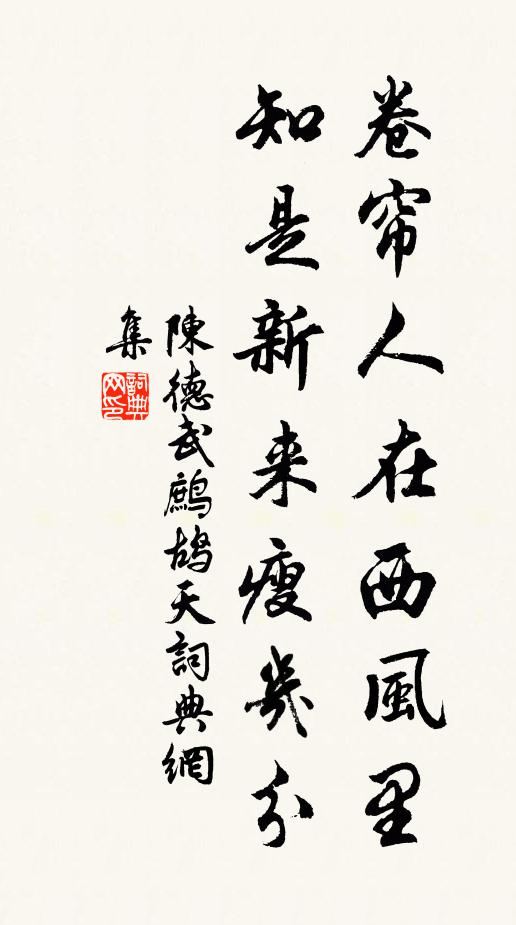 卷帘人在西風里
知是新来瘦幾分
陳德武鷓鴣天詞典網
集
詞典网印